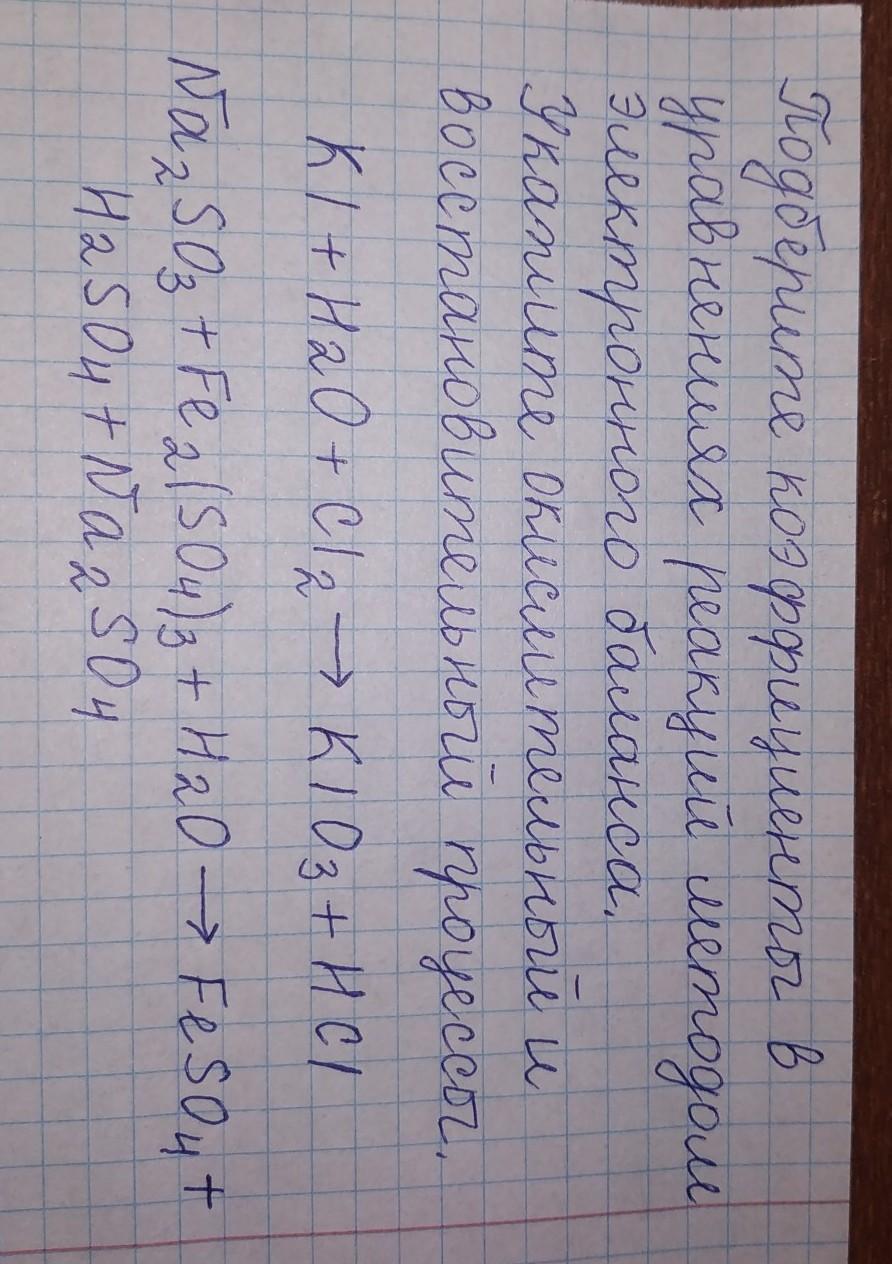 Подберите коэффициенты в
уравнениях реакций методом
электронного баланса.
Укажите окислительный и
восстановительный процессы.
KI + H₂O + Cl₂ → KIO₃ + HCl
Na₂SO₃ + Fe₂(SO₄)₃ + H₂O → FeSO₄ +
H₂SO₄ + Na₂SO₄